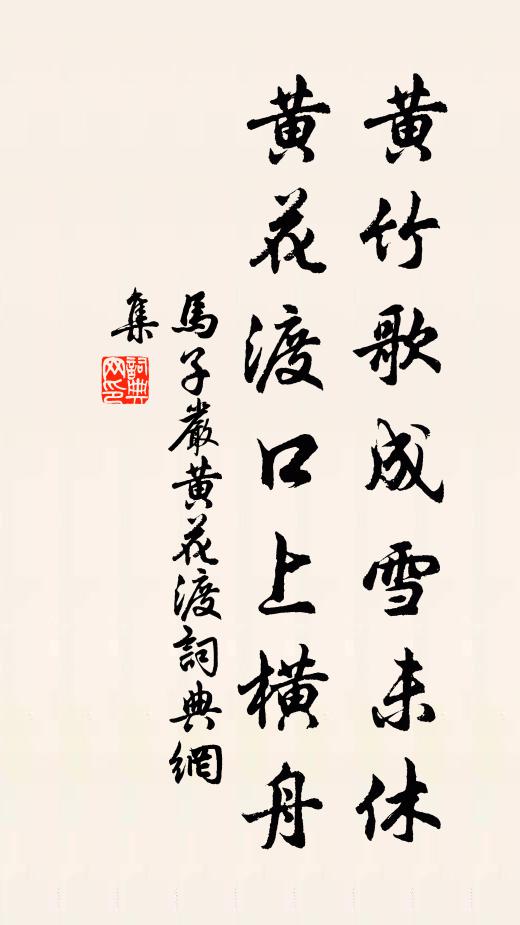 黄竹歌成雪未休
黄花渡口上橫舟
馬子嚴黄花渡詞典網
集
詞典
网印